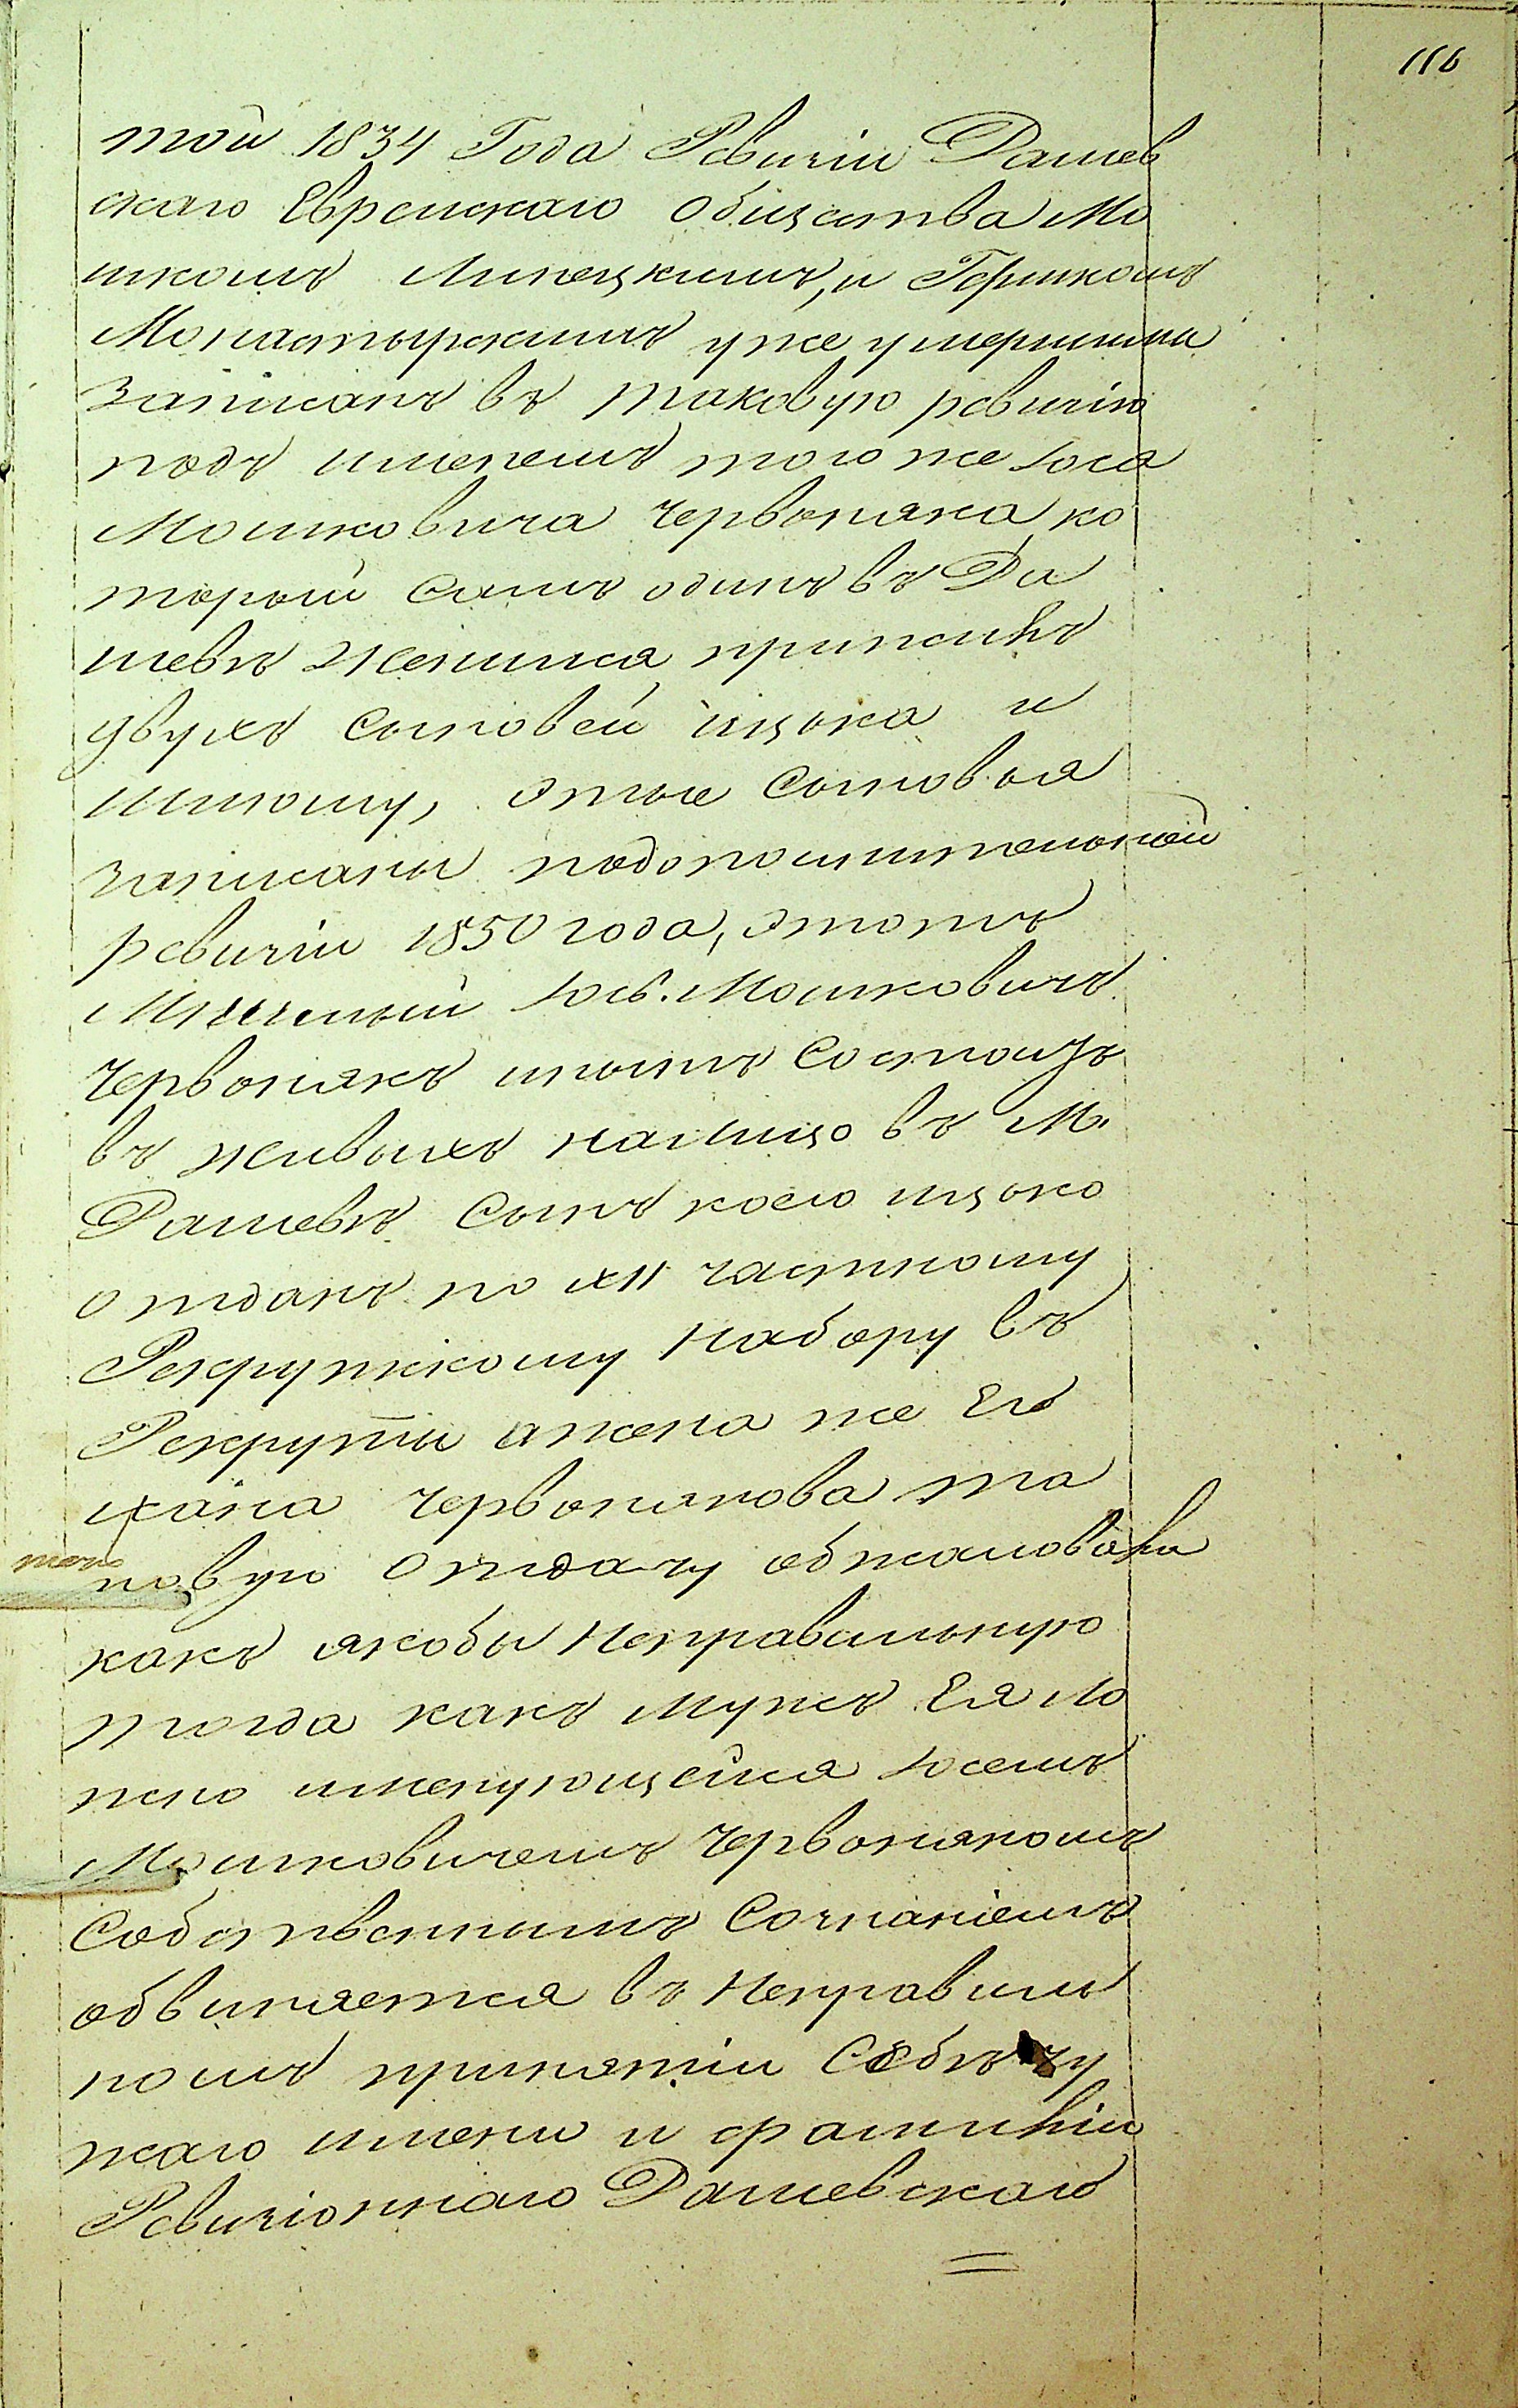 116
той 1834 Года Ревизіи Дашев
скаго Еврейскаго общества Мо
шкомъ Липецкимъ, и Гершкомъ
Монастырскимъ уже умершими
записанъ въ таковую ревизію
подъ именемъ того же Іося
Мошковича Червоняка, ко
торый самъ одинъ въ Да
шевѣ женился, прижилъ
двухъ сыновей ицька и
шлюму, этые сыновья
записаны по дополнительной
ревизіи 1850 года, этотъ
Мнимый Іось Мошковичъ
Червонякъ нынѣ состоитъ
въ живыхъ на лицо въ М.
Дашевѣ сынъ коего ицько
отданъ по XII частному
Рекрутскому набору въ
Рекруты а жена же Его
хана Червонякова та
ковую отдачу обжаловала
какъ якобы неправильную
тогда какъ мужъ Ея ло
жно именующейся Іосемъ
Мошковичемъ Червонякомъ
Собственнымъ Сознаніемъ
обвиняется въ неправиль
номъ принятіи Себѣ чу
жаго имени и фамиліи
Ревизіоннаго Дашевскаго